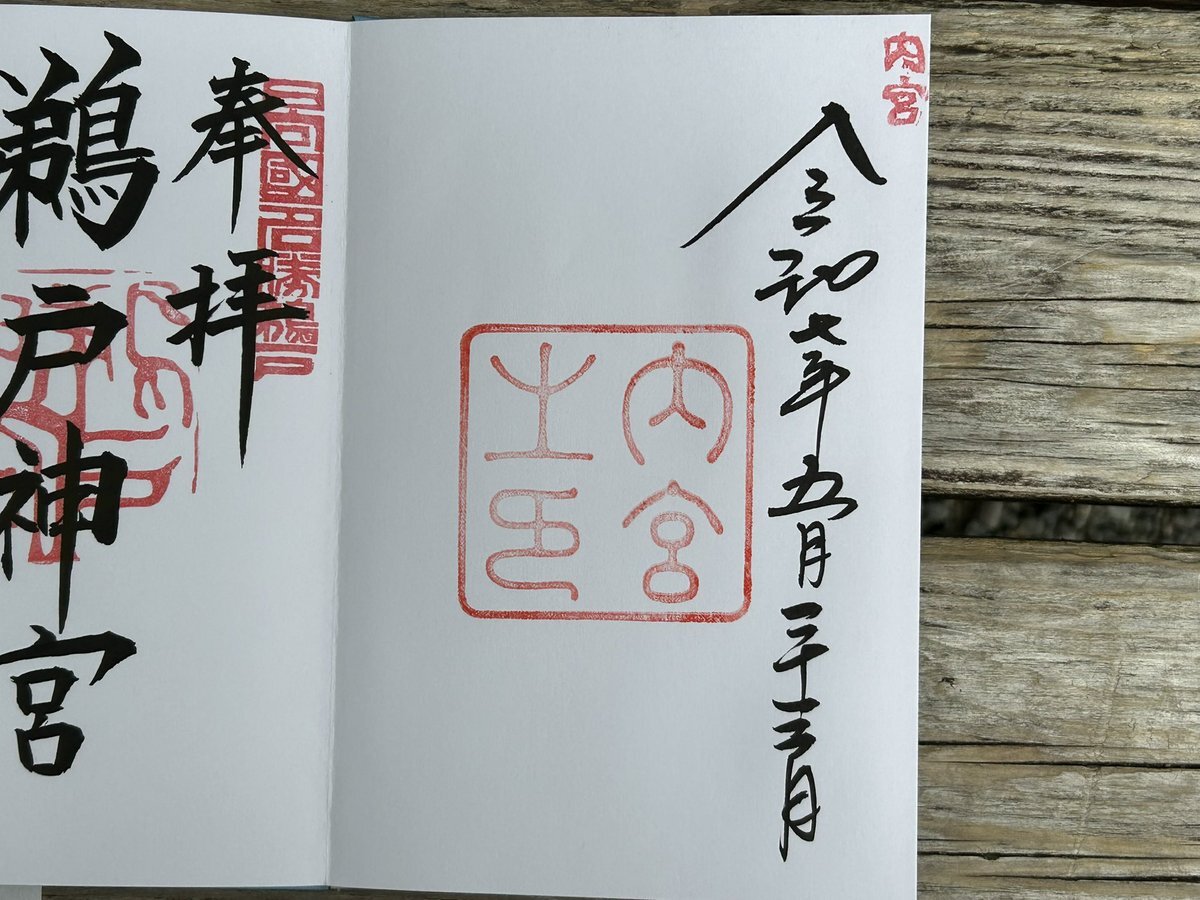 内宮
令和七年五月二十三日
内宮
之印
奉拝
日向國名勝鵜戸
鵜戸神宮